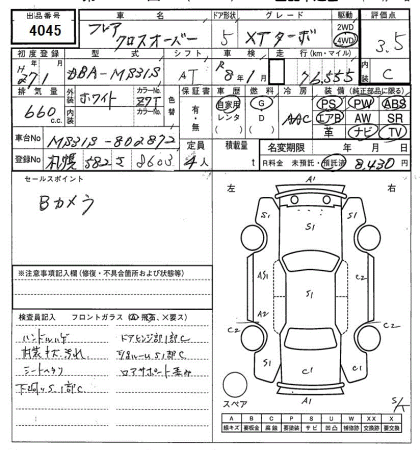 出品番号 車名 ドア形状 グレード 駆動 評価点
4045 フレア クロスオーバー 5 XTターボ 2WD 4WD 3.5
初度登録 型式 シフト 車検 走行(km・マイル) 内装
H 27年1月 DBA-MS31S AT R8年1月 76,555 C
排気量 外装 ホワイト カラーNo. Z7T 色替 保証書 車歴 燃料 冷房 装備(純正部品に限る)
660 c.c. 内装 カラーNo. 有・無 自家用 G AAC PS PW ABS
レンタ D エアB AW SR
( ) ( ) 革 ナビ TV
車台No MS31S-802872 定員 積載量 名変期限 年 月 日
登録No 札幌 582 さ 8603 4人 t R料金 未預託・預託済 8,430円
セールスポイント
Bカメラ
※注意事項記入欄(修復・不具合箇所および状態等)
検査員記入 フロントガラス(A 飛石、×要ス)
ハンドルハゲ
内装キズ、汚れ
シートヘタリ
下廻りS1部C
ドアヒンジ部1部C
リアサポート歪み
左 右
A1
S1
S1 S1
AS1 S1 C2
A2 C2
S1
C1 C1 C1
A1
スペア
S/K
A B C P S U W X XX
線キズ 要板金 腐蝕 要塗装 サビ 凹凸 補修跡 要交換 交換済